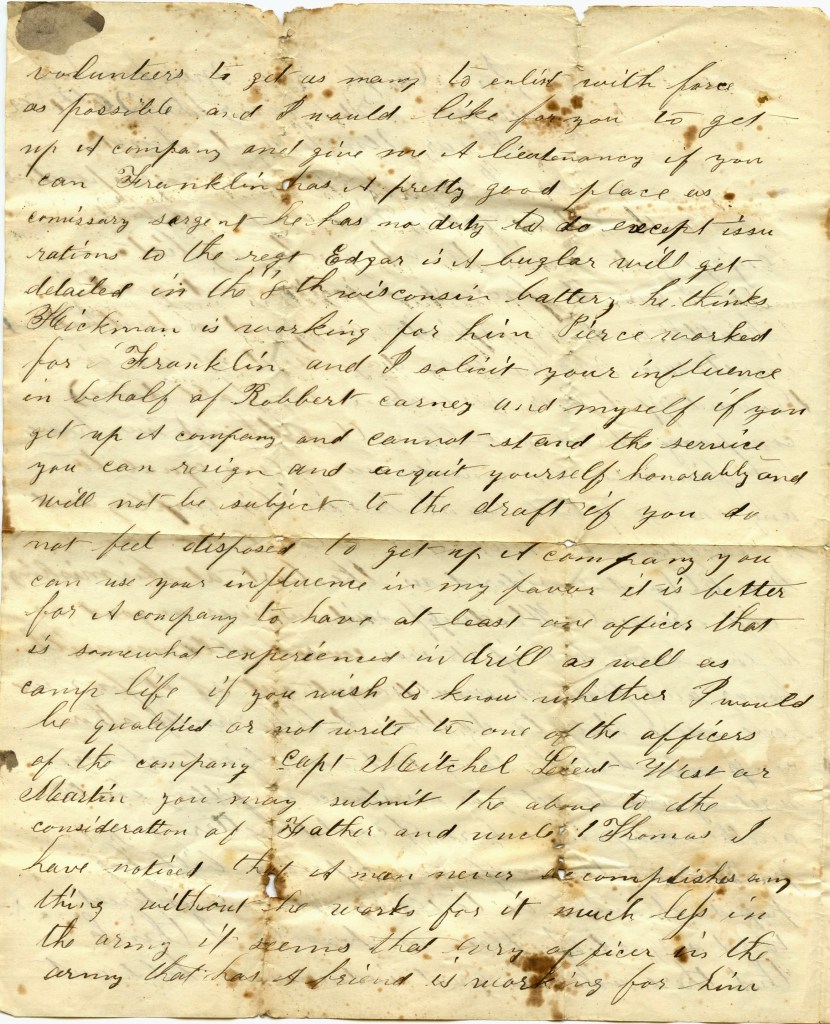 volunteers to get as many to enlist with force
as possible and I would like for you to get
up A company and give me A lieutenancy if you
can Franklin has A pretty good place as
comissary sergent he has no duty to do except issu
rations to the regt Edgar is A buglar will get
detailed in the 8th wisconsin battery he thinks
Hickman is working for him Pierce worked
for Franklin and I solicit your influence
in behalf of Robbert carney and myself if you
get up A company and cannot stand the service
you can resign and acquit yourself honorably and
will not be subject to the draft if you do
not feel disposed to get up A company you
can use your influence in my favor it is better
for A company to have at least one officer that
is somewhat experienced in drill as well as
camp life if you wish to know whether I would
be qualified or not write to one of the officers
of the company Capt Mitchel Lieut West or
Martin you may submit the above to the
consideration of Father and uncle Thomas I
have noticed that A man never accomplishes any
thing without he works for it much less in
the army it seems that evry officer in the
army that has A friend is working for him